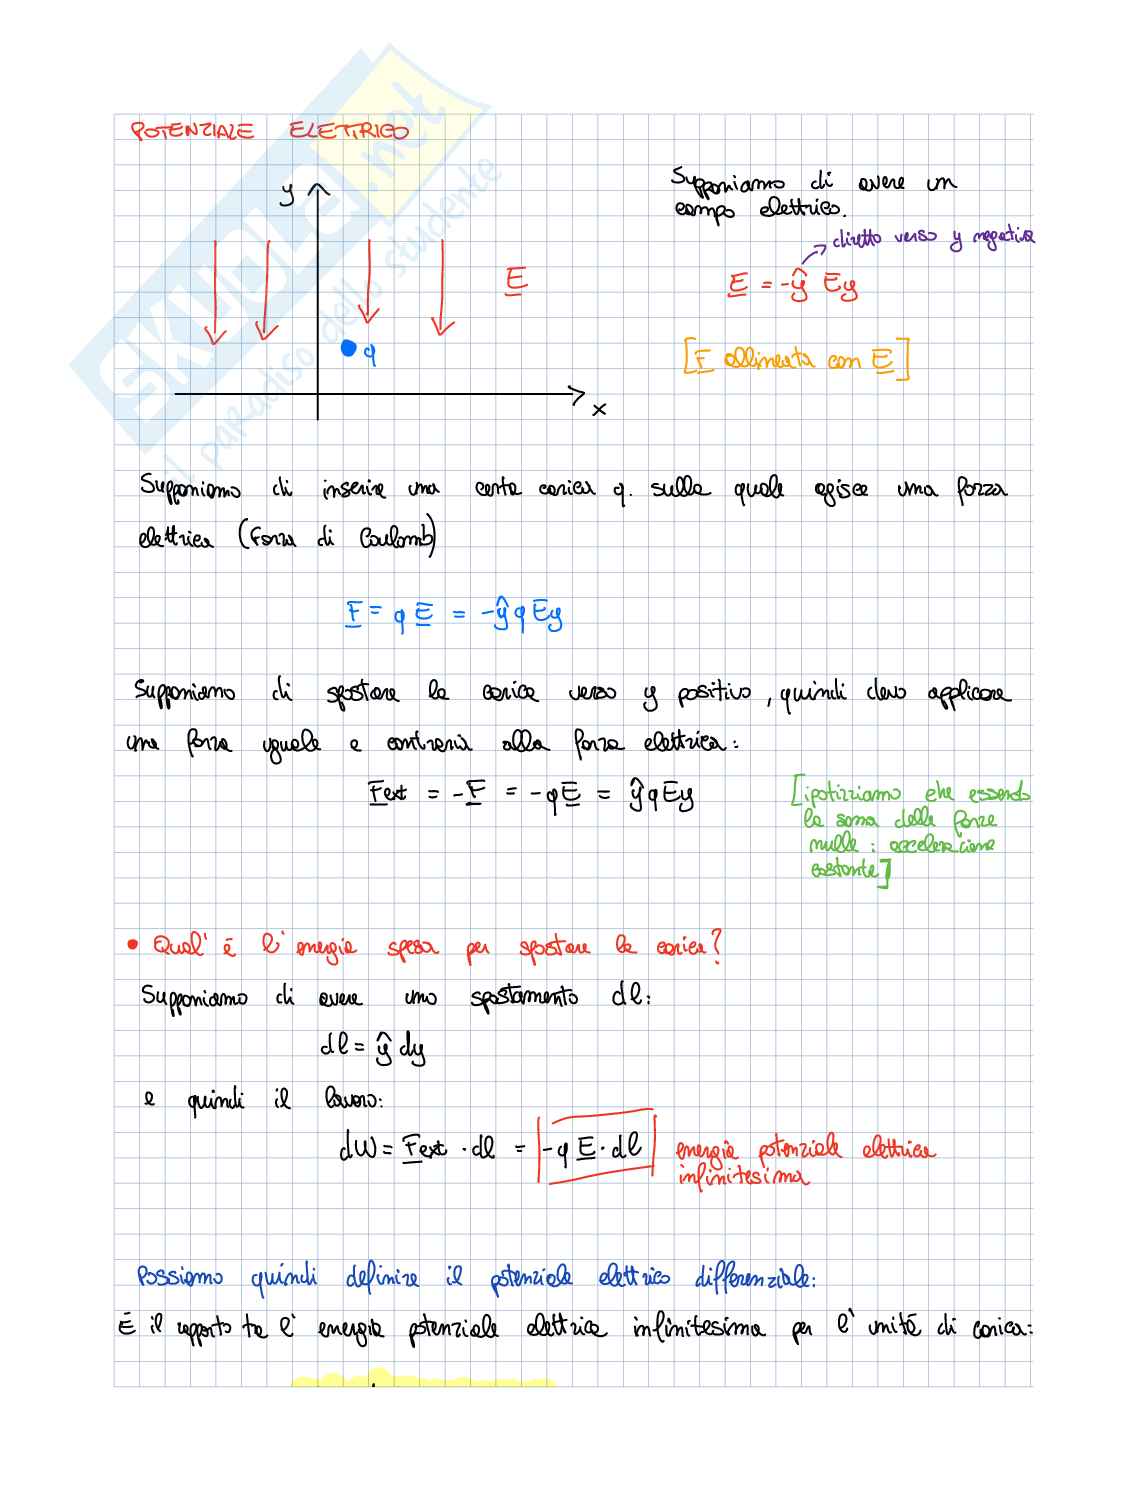 POTENZIALE ELETTRICO
y
Supponiamo di avere un
campo elettrico.
diretto verso y negativa
E
E = -ŷ Ey
q
[F allineata con E]
x
SKUOLA.net
il paradiso dello studente
Supponiamo di inserire una certa carica q. sulla quale agisce una forza
elettrica (Forza di Coulomb)
F = q E = -ŷ q Ey
Supponiamo di spostare la carica verso y positivo, quindi devo applicare
una forza uguale e contraria alla forza elettrica:
Fext = -F = -qE = ŷ q Ey
[ipotizziamo che essendo
la soma delle forze
nulle : accelerazione
costante]
• Qual'è l'energia spesa per spostare la carica?
Supponiamo di avere uno spostamento dl:
dl = ŷ dy
e quindi il lavoro:
dW = Fext · dl = -q E · dl energia potenziale elettrica
infinitesima
Possiamo quindi definire il potenziale elettrico differenziale:
È il rapporto tra l'energia potenziale elettrica infinitesima per l'unità di carica: